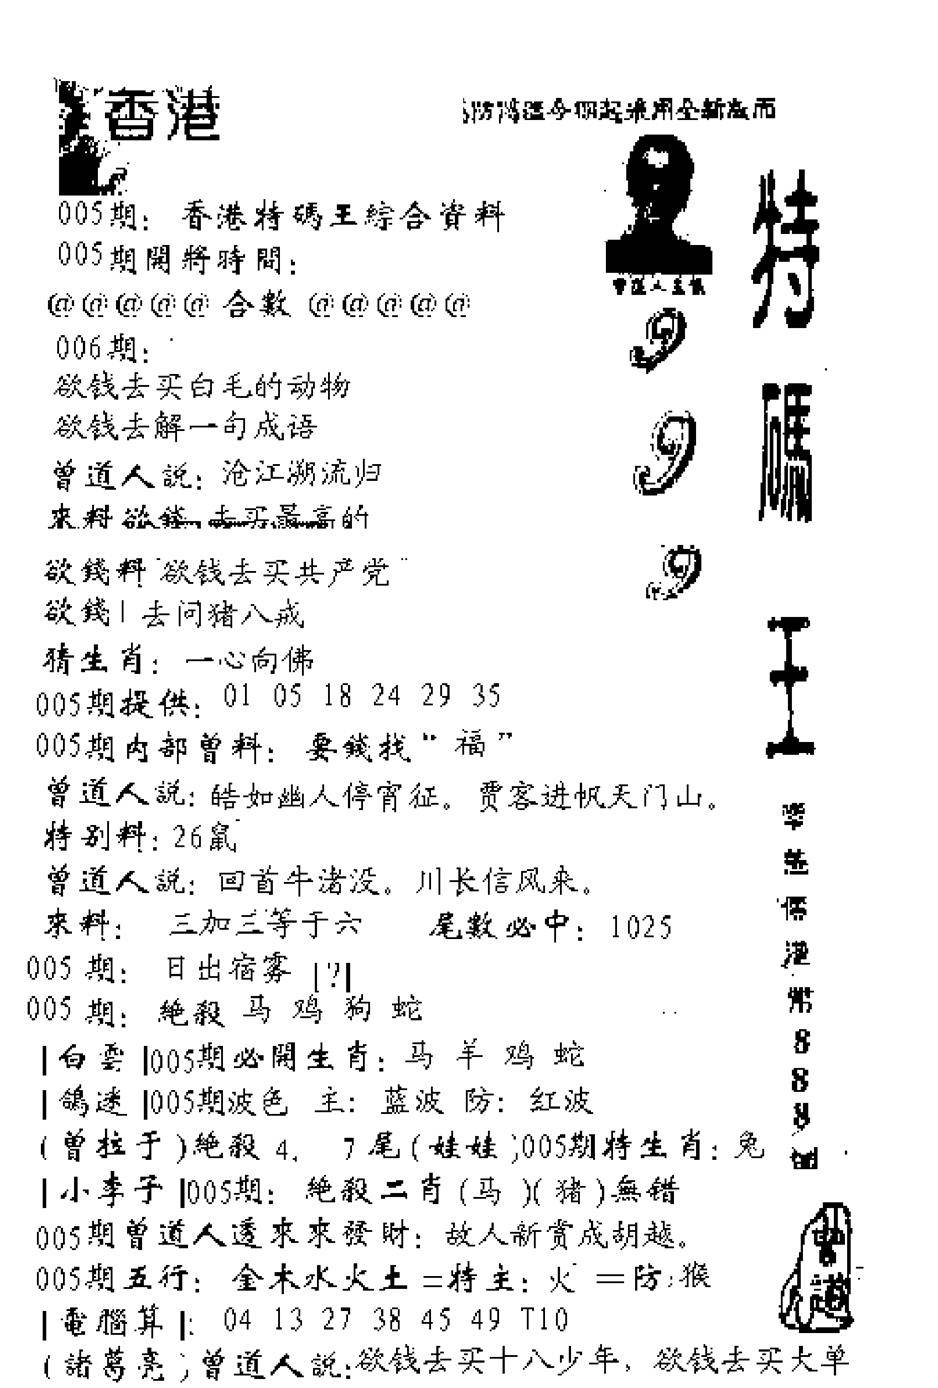 香港
005期：香港特碼王綜合資料
005期開將時間：
@@@@@合數@@@@@
006期：
欲钱去买白毛的动物
欲钱去解一句成语
曾道人説：沧江溯流归
來料欲錢，去买最高的
欲錢料"欲钱去买共产党"
欲錢|去问猪八戒
猜生肖：一心向佛
005期提供：01 05 18 24 29 35
005期内部曾料：要錢找“福”
曾道人説：皓如幽人停宵征。贾客进帆天门山。
特别料：26鼠
曾道人説：回首牛渚没。川长信风来。
來料：三加三等于六 尾數必中：1025
005期：日出宿雾[?]
005期：絶殺马鸡狗蛇
|白雲|005期必開生肖：马羊鸡蛇
|鴿迷|005期波色 主：蓝波 防：红波
(曾拉于)絶殺4．7尾(娃娃)005期特生肖：兔
|小李子|005期：絶殺二肖(马)(猪)無错
005期曾道人透來來發財：故人新赏成胡越。
005期五行：金木水火土=特主：火=防：猴
|電腦算|：04 13 27 38 45 49 T10
(諸葛亮)曾道人説：欲钱去买十八少年，欲钱去买大单
曾道人
999
特碼王
8 8 8
曾道